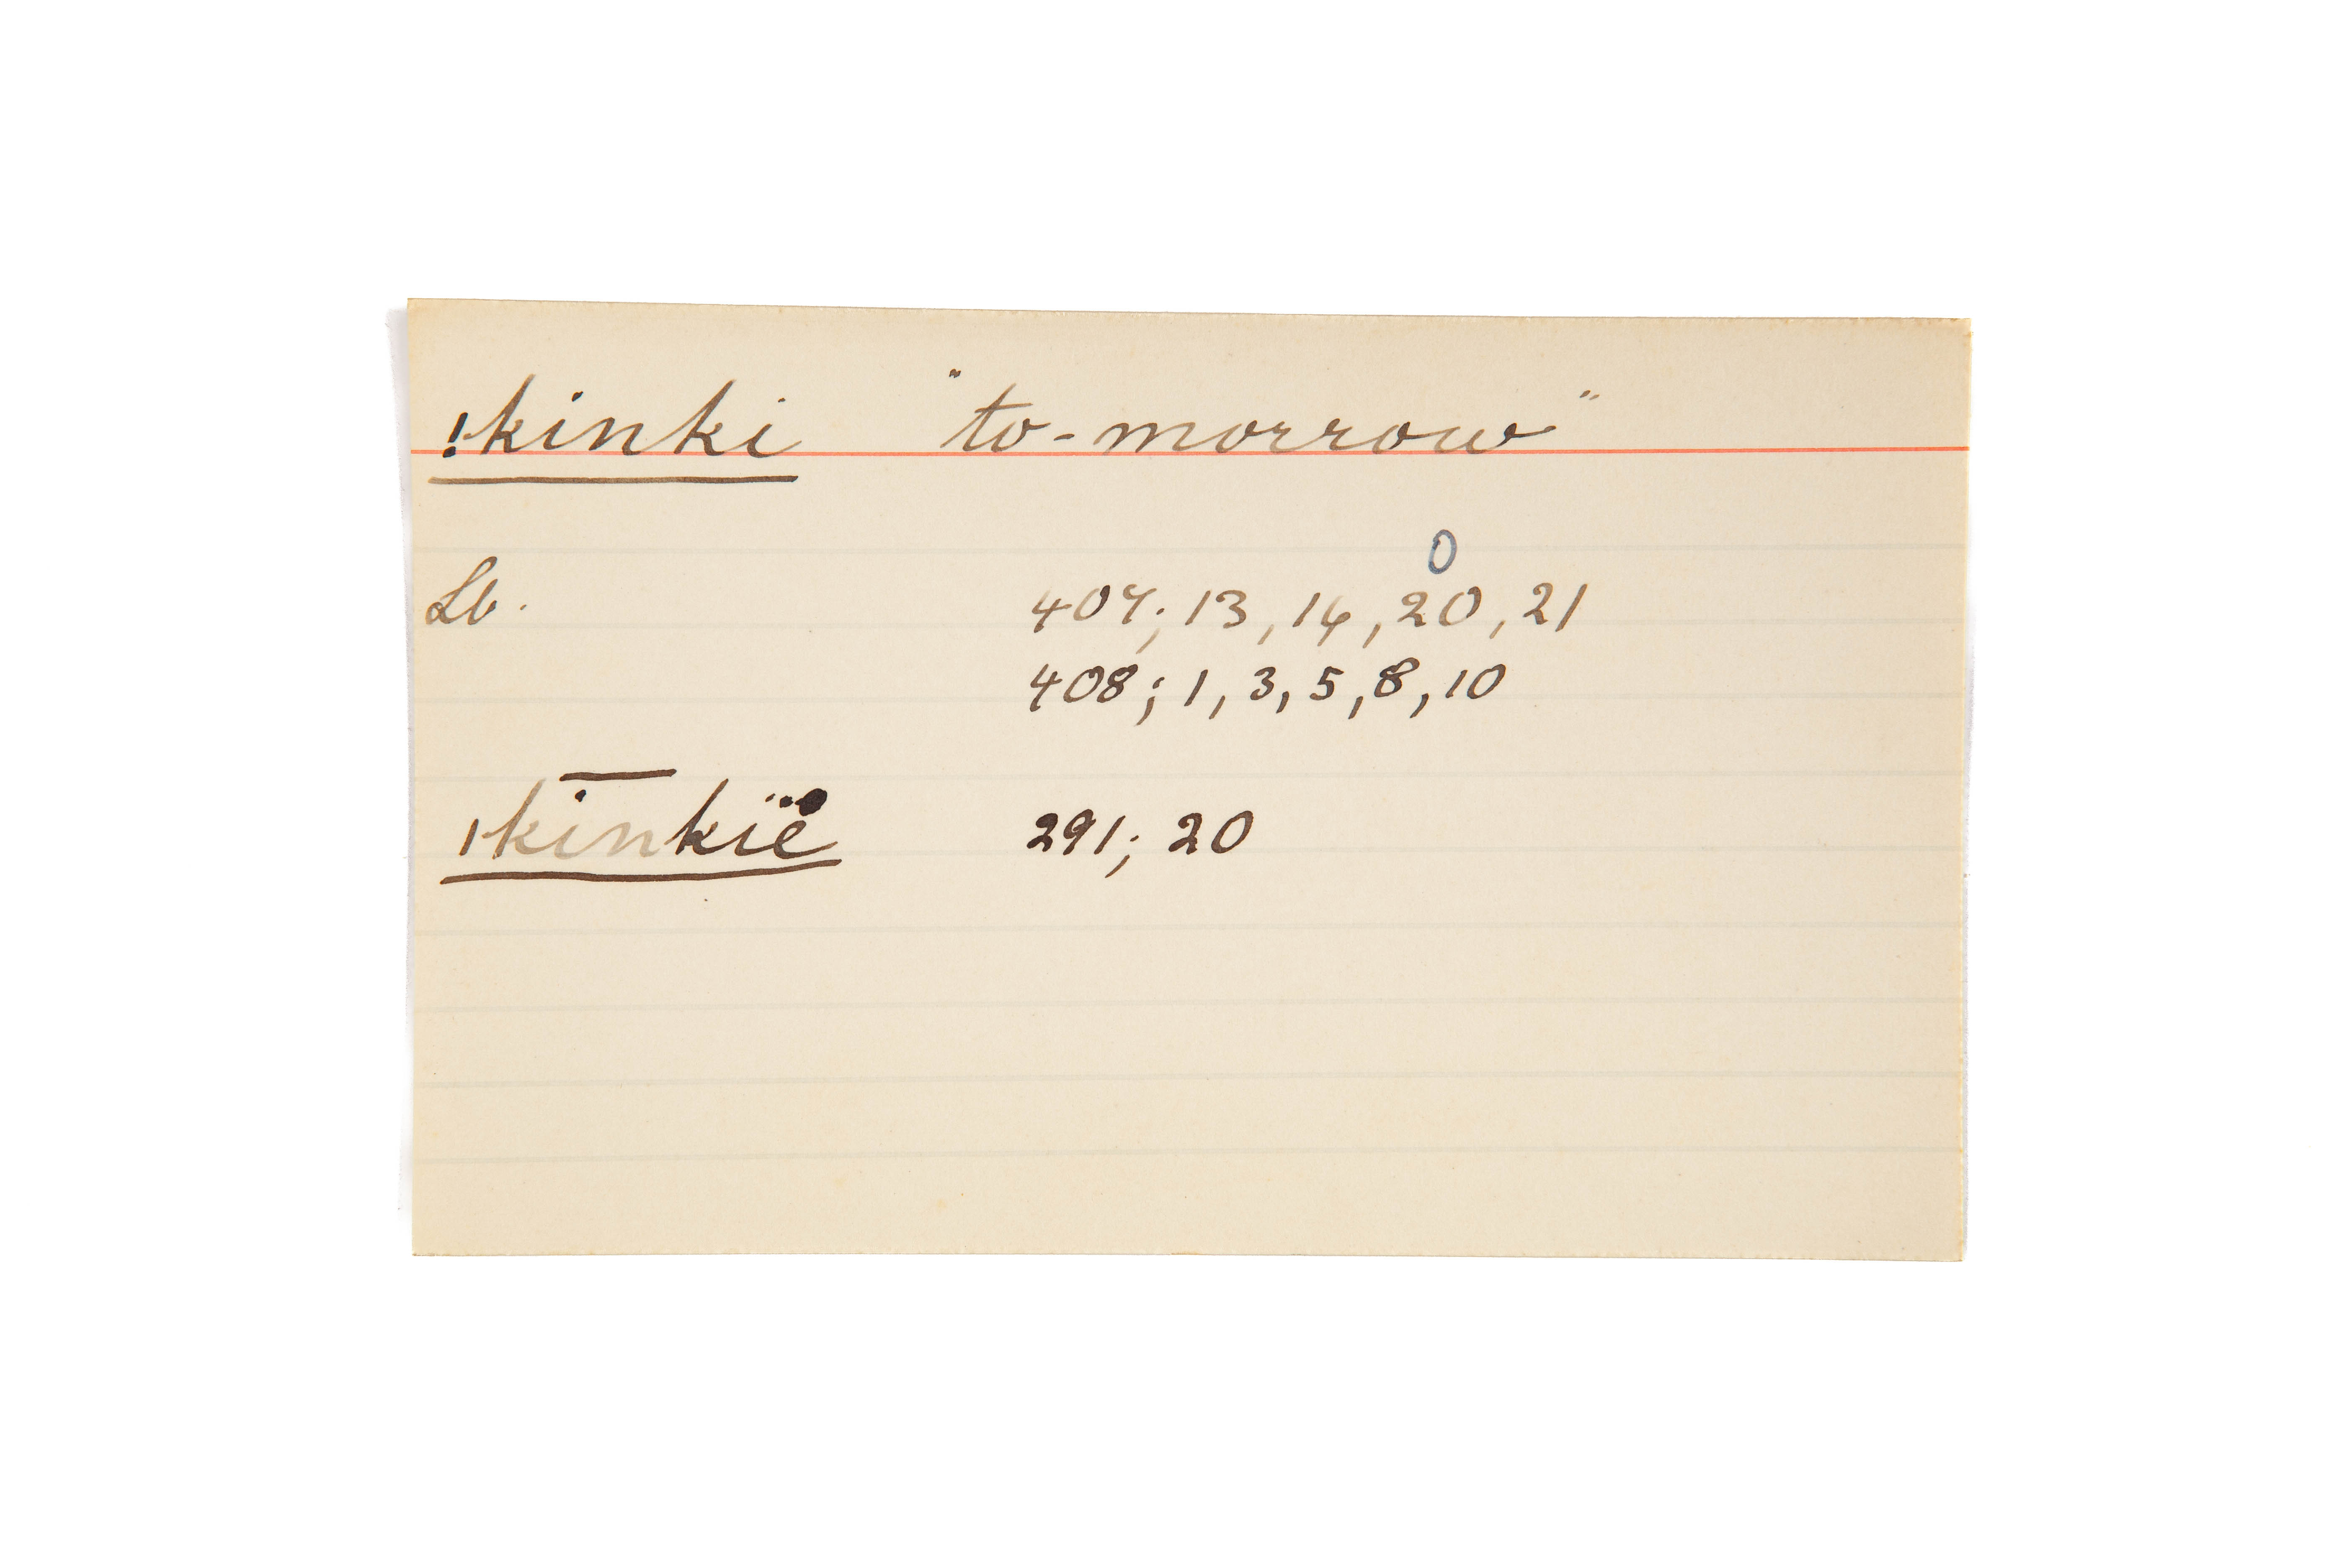 !kinki "to-morrow"
0
Lb. 407; 13, 14, 20, 21
408; 1, 3, 5, 8, 10
291; 20